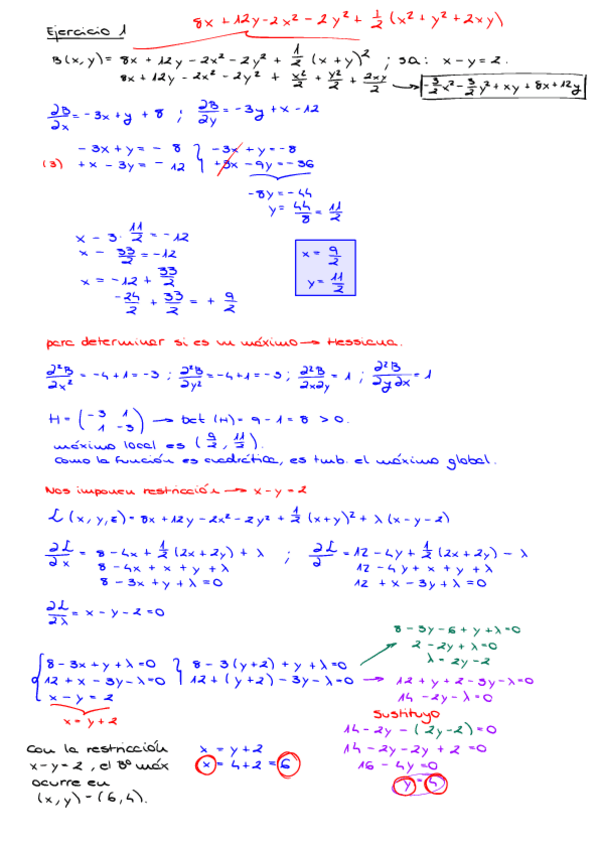 Ejercicio 1
8x + 12y - 2x² - 2y² + 1/2 (x² + y² + 2xy)
B(x,y) = 8x + 12y - 2x² - 2y² + 1/2 (x+y)² ; sa: x - y = 2.
8x + 12y - 2x² - 2y² + x²/2 + y²/2 + 2xy/2 → -3/2x² - 3/2y² + xy + 8x + 12y
∂B/∂x = -3x + y + 8 ; ∂B/∂y = -3y + x - 12
-3x + y = -8 } -3x + y = -8
(3) +x - 3y = -12 } +3x - 9y = -36
-8y = -44
y = 44/8 = 11/2
x - 3 · 11/2 = -12
x - 33/2 = -12
x = -12 + 33/2
-24/2 + 33/2 = + 9/2
x = 9/2
y = 11/2
para determinar si es un máximo → Hessiana.
∂²B/∂x² = -4+1 = -3 ; ∂²B/∂y² = -4+1 = -3 ; ∂²B/∂x∂y = 1 ; ∂²B/∂y∂x = 1
H = (-3 1
1 -3) → Det (H) = 9 - 1 = 8 > 0.
máximo local es (9/2, 11/2).
como la función es cuadrática, es tmb. el máximo global.
Nos imponen restricción → x - y = 2
L (x, y, ε) = 8x + 12y - 2x² - 2y² + 1/2 (x+y)² + λ (x - y - 2)
∂L/∂x = 8 - 4x + 1/2 (2x + 2y) + λ ; ∂L/∂ = 12 - 4y + 1/2 (2x + 2y) - λ
8 - 4x + x + y + λ
12 - 4y + x + y + λ
8 - 3x + y + λ = 0
12 + x - 3y + λ = 0
∂L/∂λ = x - y - 2 = 0
8 - 3y - 6 + y + λ = 0
2 - 2y + λ = 0
λ = 2y - 2
8 - 3x + y + λ = 0 } 8 - 3(y+2) + y + λ = 0
12 + x - 3y - λ = 0 } 12 + (y+2) - 3y - λ = 0 → 12 + y + 2 - 3y - λ = 0
x - y = 2
14 - 2y - λ = 0
x = y + 2
Sustituyo
14 - 2y - (2y - 2) = 0
14 - 2y - 2y + 2 = 0
16 - 4y = 0
y = 4
x = y + 2
x = 4 + 2 = 6
Con la restricción
x - y = 2, el Bº máx
ocurre en
(x, y) - (6, 4).